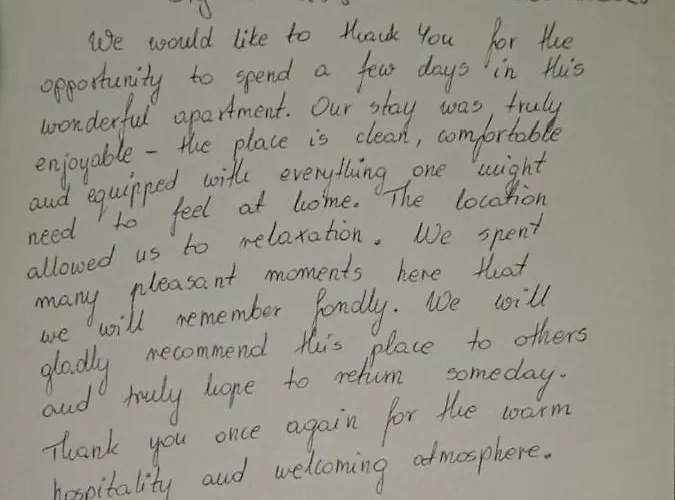 We would like to thank You for the
opportunity to spend a few days in this
wonderful apartment. Our stay was truly
enjoyable – the place is clean, comfortable
and equipped with everything one might
need to feel at home. The location
allowed us to relaxation. We spent
many pleasant moments here that
we will remember fondly. We will
gladly recommend this place to others
and truly hope to return someday.
Thank you once again for the warm
hospitality and welcoming atmosphere.